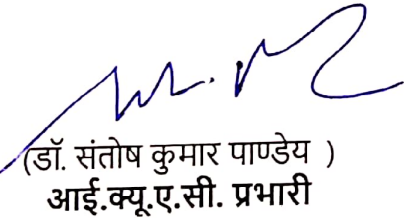 (डॉ. संतोष कुमार पाण्डेय )
आई.क्यू.ए.सी. प्रभारी